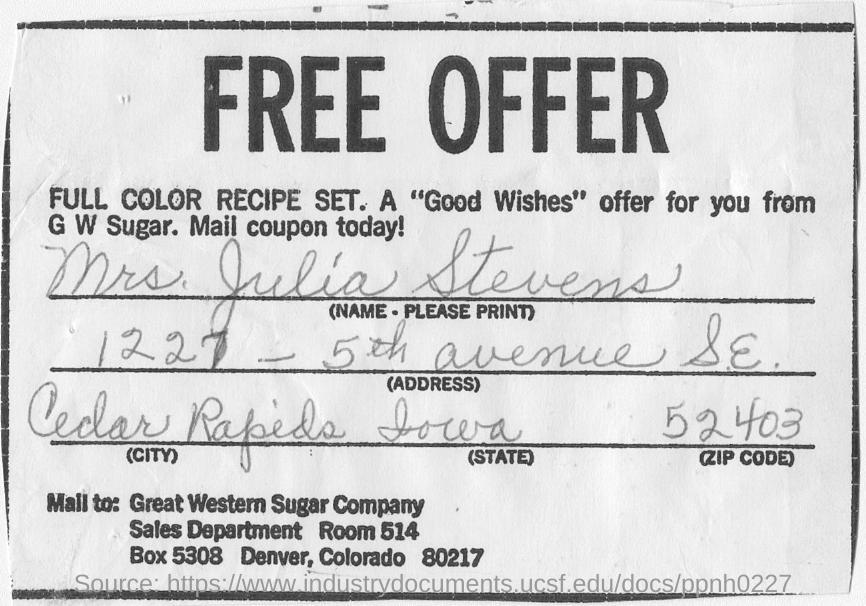 FREE OFFER
FULL COLOR RECIPE SET. A "Good Wishes" offer for you from
G W Sugar. Mail coupon today!
Mrs. Julia Stevens
(NAME - PLEASE PRINT)
1227 - 5th avenue S.E.
(ADDRESS)
Cedar Rapids Iowa 52403
(CITY) (STATE) (ZIP CODE)
Mail to: Great Western Sugar Company
Sales Department Room 514
Box 5308 Denver, Colorado 80217
Source: https://www.industrydocuments.ucsf.edu/docs/ppnh0227